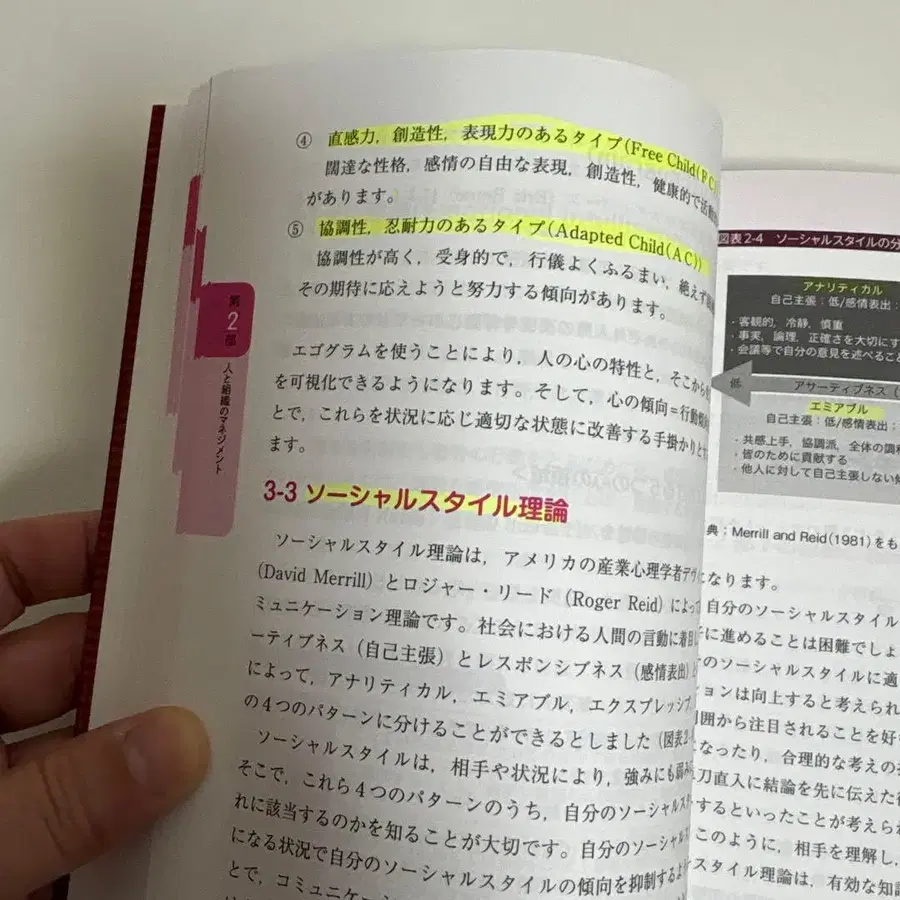 ④ 直感力，創造性，表現力のあるタイプ(Free Child(FC)
闊達な性格，感情の自由な表現，創造性，健康的で活動
があります。
⑤ 協調性，忍耐力のあるタイプ(Adapted Child(AC))
協調性が高く，受身的で，行儀よくふるまい，絶えず
その期待に応えようと努力する傾向があります。
エゴグラムを使うことにより，人の心の特性と，そこから
を可視化できるようになります。そして，心の傾向＝行動
とで，これらを状況に応じ適切な状態に改善する手掛かりと
ます。
3-3 ソーシャルスタイル理論
ソーシャルスタイル理論は，アメリカの産業心理学者デ
(David Merrill) とロジャー・リード (Roger Reid) によって
ミュニケーション理論です。社会における人間の言動に着目
ーティブネス（自己主張）とレスポンシブネス（感情表出）
によって，アナリティカル，エミアブル，エクスプレッシブ，
の４つのパターンに分けることができるとしました（図表2-
ソーシャルスタイルは，相手や状況により，強みにも弱み
そこで，これら４つのパターンのうち，自分のソーシャルス
れに該当するのかを知ることが大切です。自分のソーシャルス
になる状況で自分のソーシャルスタイルの傾向を抑制する
とで，コミュニケー
第
2
部
人と組織のマネジメント
図表2-4 ソーシャルスタイルの分
アナリティカル
自己主張：低/感情表出：
・客観的，冷静，慎重
・事実，論理，正確さを大切にす
・会議等で自分の意見を述べること
低
アサーティブネス（
エミアブル
自己主張：低/感情表出：
・共感上手，協調派，全体の調和
・皆のために貢献する
・他人に対して自己主張しない傾
典：Merrill and Reid(1981)をも
になります。
自分のソーシャルスタイル
に進めることは困難でしょ
のソーシャルスタイルに適
ションは向上すると考えられ
囲から注目されることを好
なったり，合理的な考えの
刀直入に結論を先に伝えた
するといったことが考えられ
このように，相手を理解し，
スタイル理論は，有効な知識